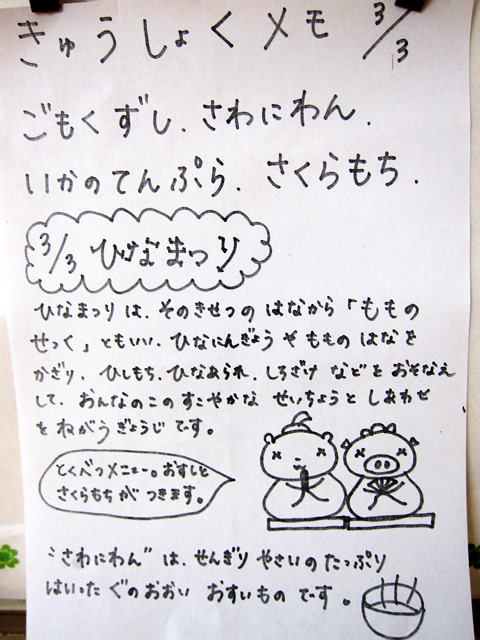 きゅうしょくメモ 3/3
ごもくずし、さわにわん、
いかのてんぷら、さくらもち、
3/3 ひなまつり
ひなまつりは、そのきせつのはなから「ももの
せっく」ともいい、ひなにんぎょうやもものはなを
かざり、ひしもち、ひなあられ、しろざけなどをおそなえ
して、おんなのこのすこやかなせいちょうとしあわせ
をねがうぎょうじです。
とくべつメニュー。おすしと
さくらもちがつきます。
"さわにわん"は、せんぎりやさいのたっぷり
はいったぐのおおいおすいものです。